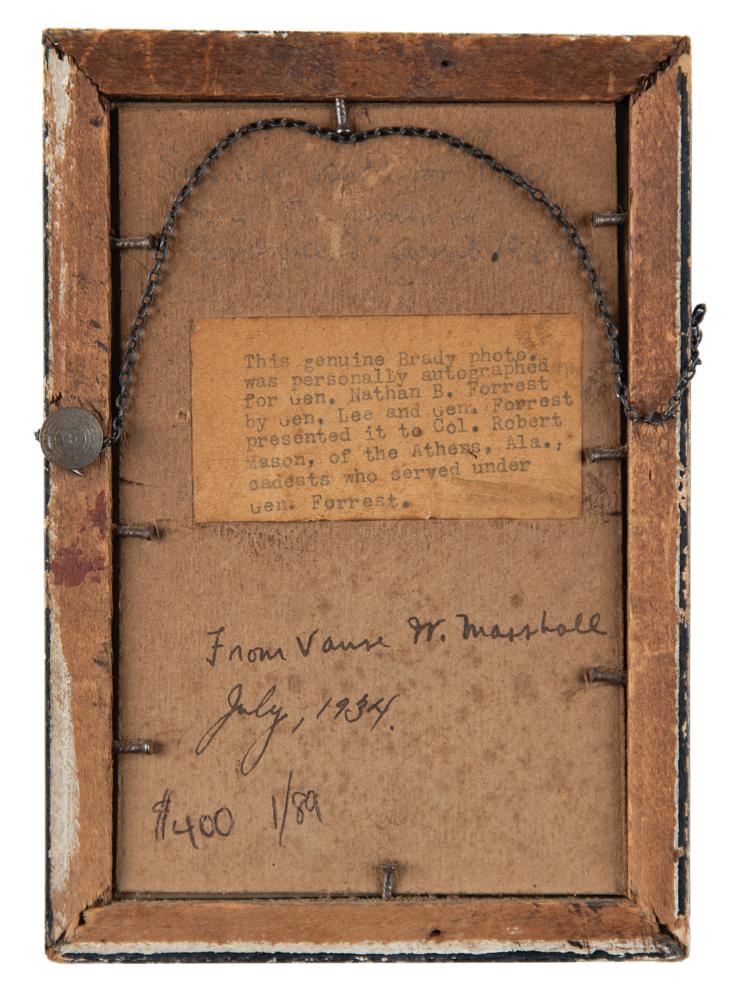 This genuine Brady photo.
was personally autographed
for Gen. Nathan B. Forrest
by Gen. Lee and Gen. Forrest
presented it to Col. Robert
Mason, of the Athens, Ala.,
cadests who served under
Gen. Forrest.
From Vause W. Marshall
July, 1934.
$400 1/89